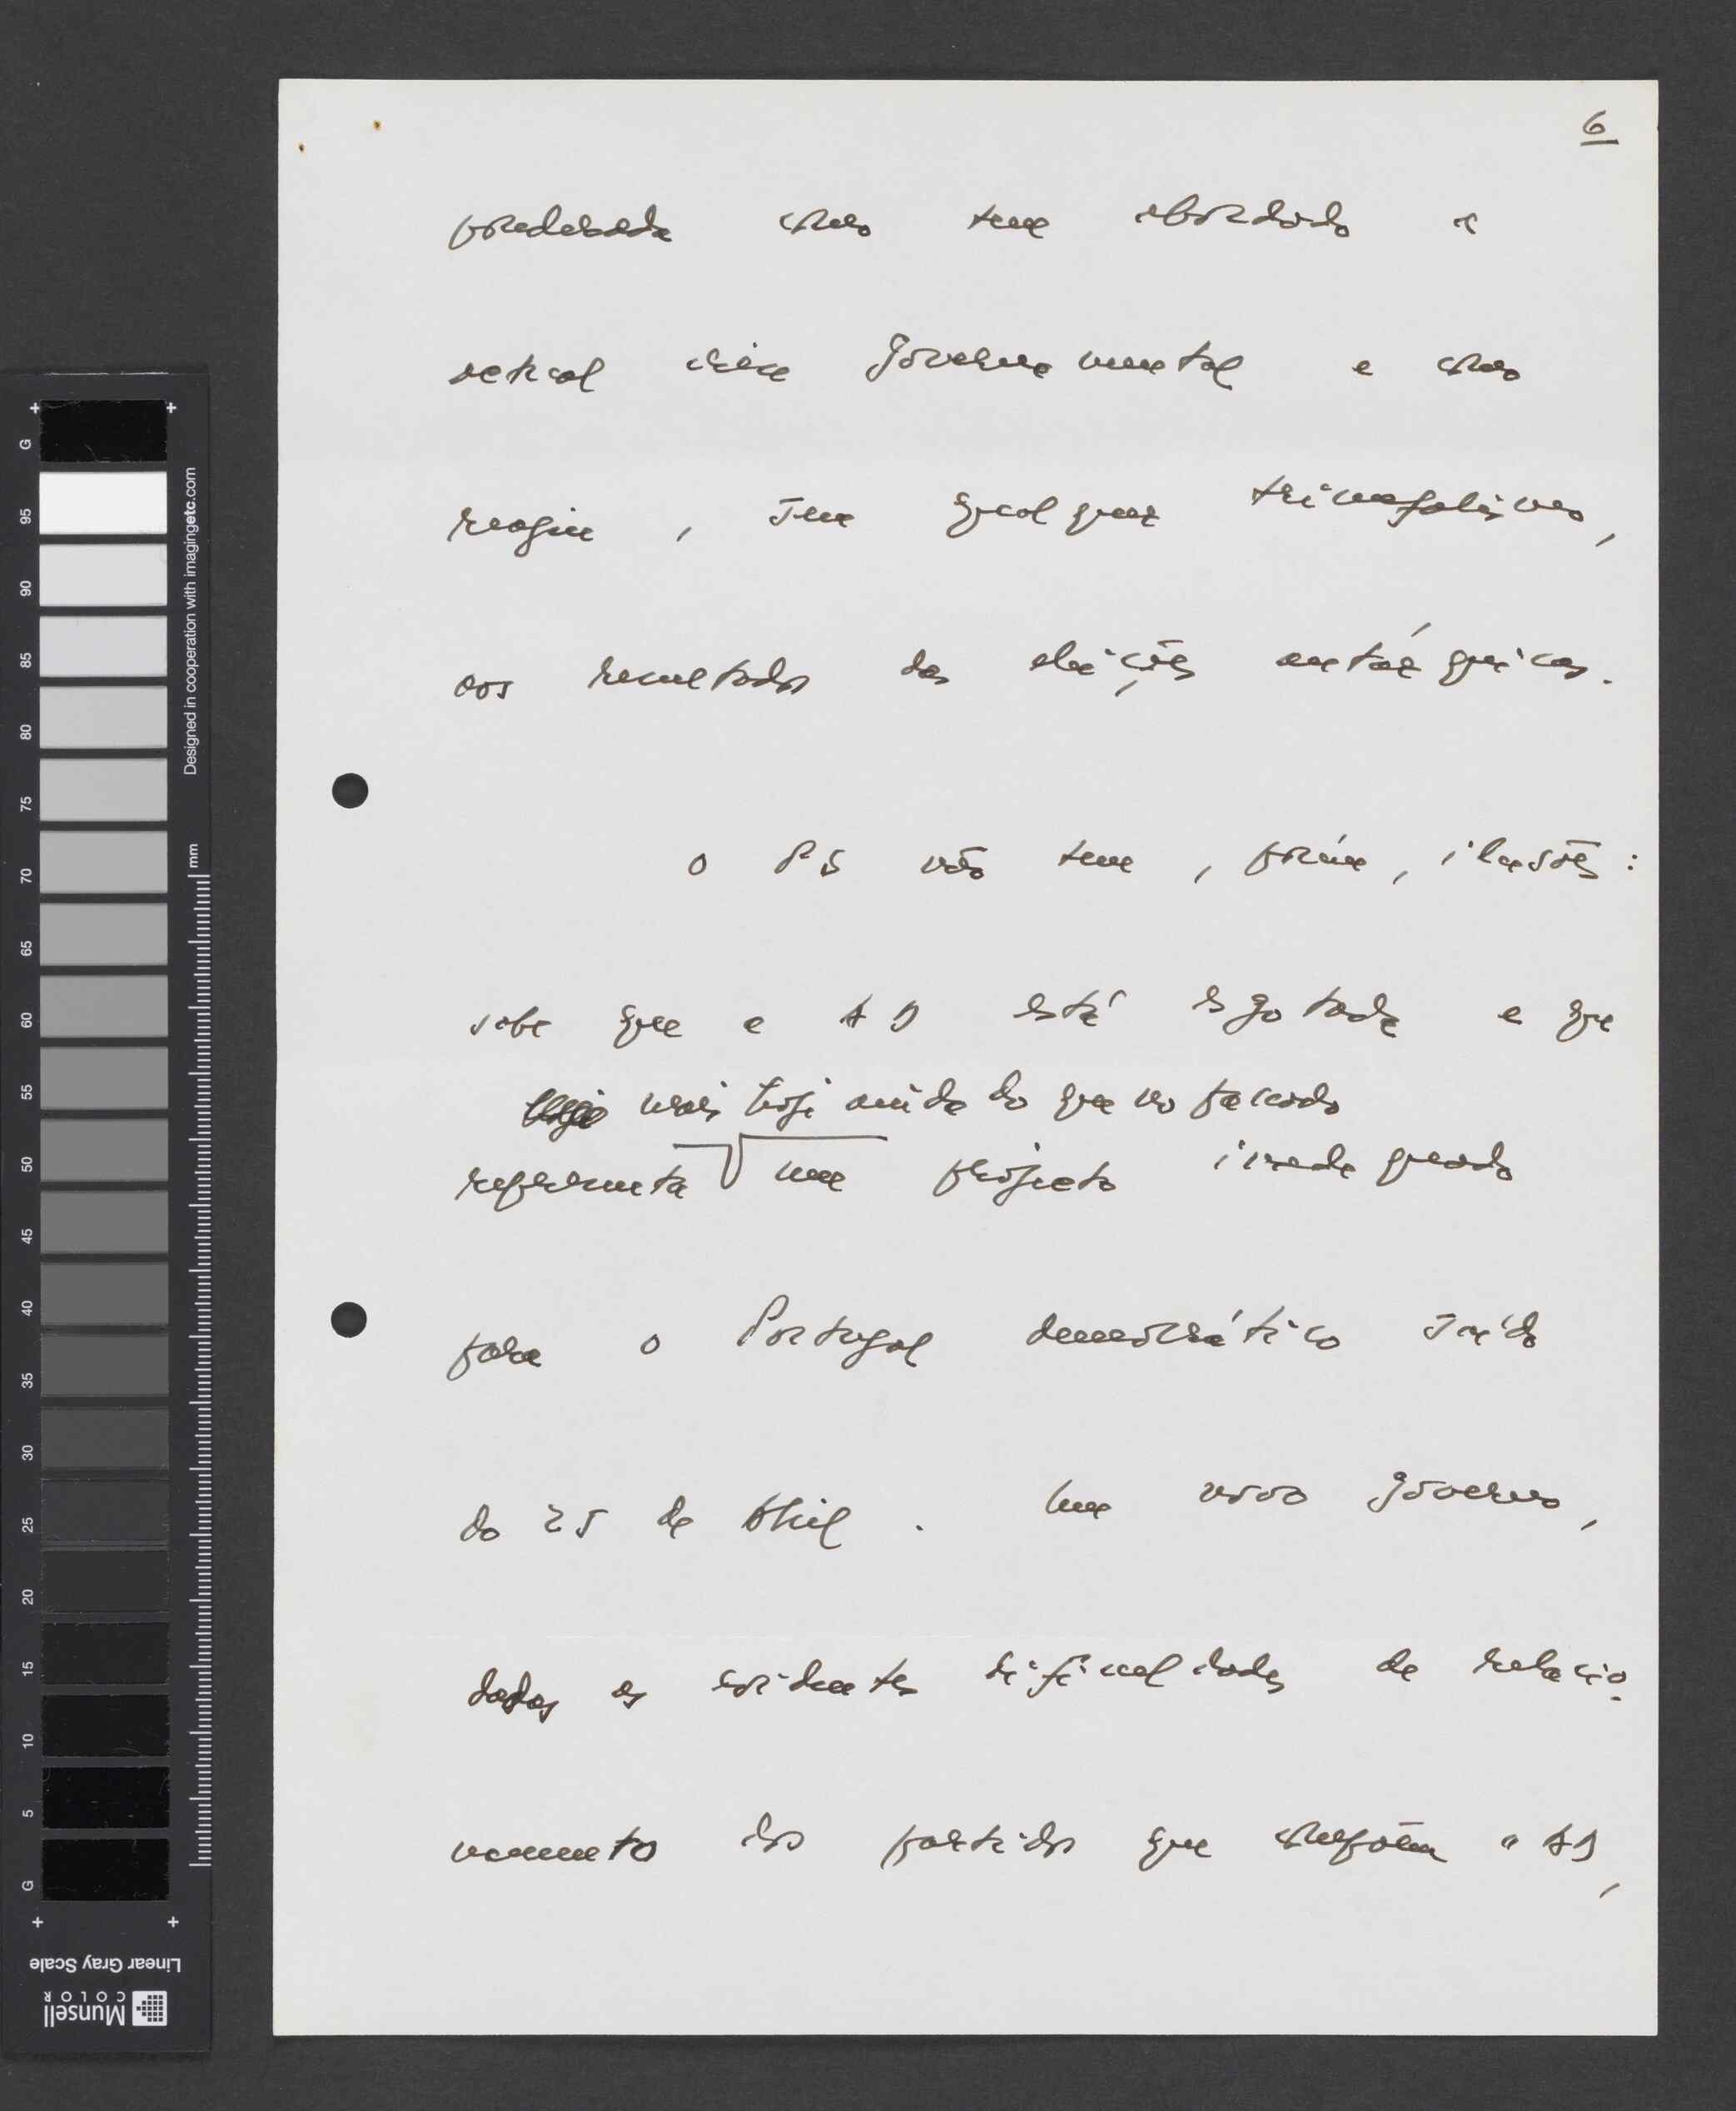 6
ponderada como tem abordado a
actual crise governamental e como
reagiu, sem qualquer triunfalismo,
aos resultados das eleições autárquicas.
O PS não tem, porém, ilusões:
sabe que a AD está esgotada e que
mais hoje ainda do que no passado
representa um projecto inadequado
para o Portugal democrático saído
do 25 de Abril. Um novo governo,
dadas as evidentes dificuldades de relacio-
namento dos partidos que compõem a AD,
mm
Designed in cooperation with imagingetc.com
G 95 90 85 80 75 70 65 60 55 50 45 40 35 30 25 20 15 10 5 G
Linear Gray Scale
Munsell
COLOR